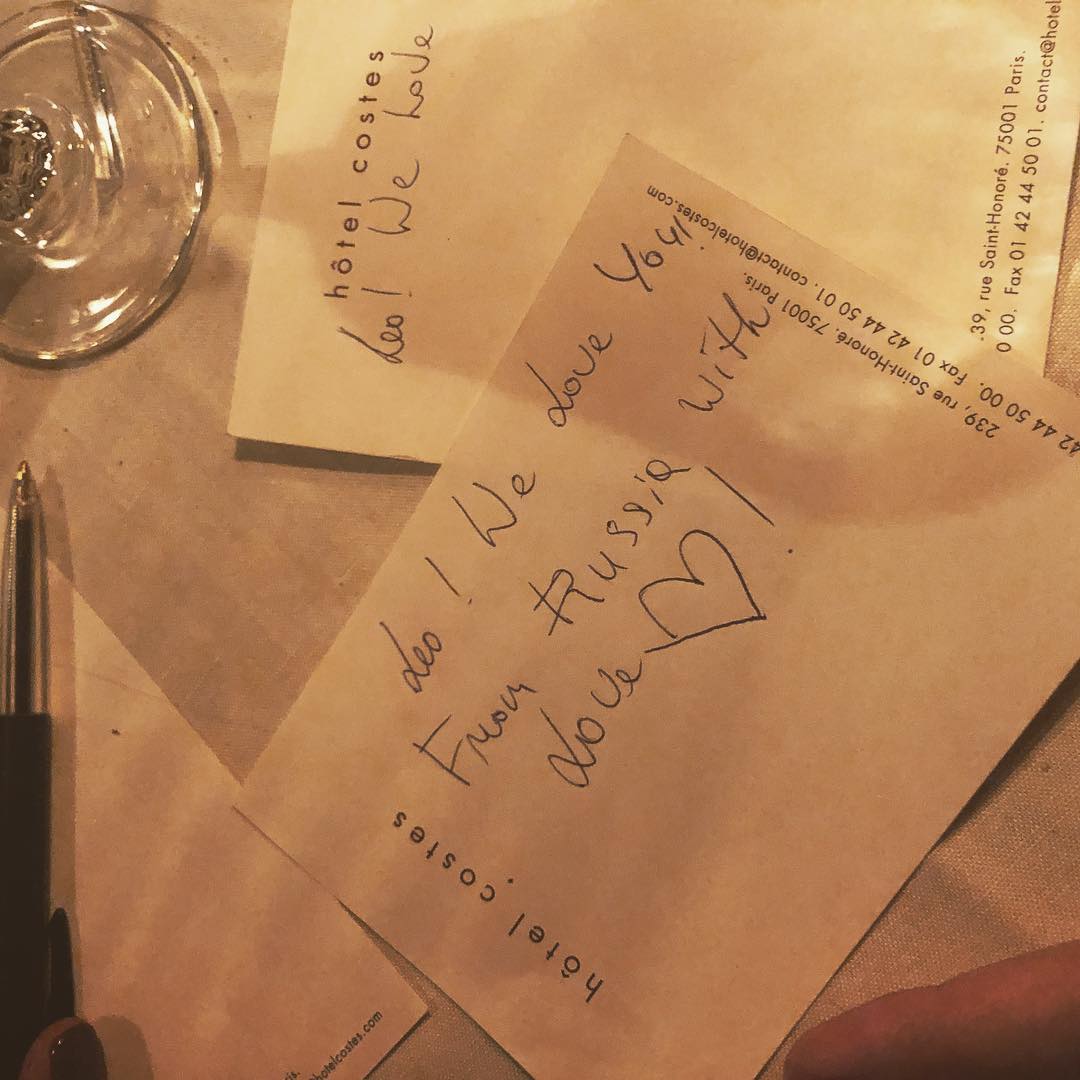 hôtel costes
Leo! We Love
.39, rue Saint-Honoré. 75001 Paris.
0 00. Fax 01 42 44 50 01. contact@hotel
Leo! We Love You!
From Russia with
Love!
hôtel costes
239, rue Saint-Honoré. 75001 Paris.
42 44 50 00. Fax 01 42 44 50 01. contact@hotelcostes.com
is.
@hotelcostes.com